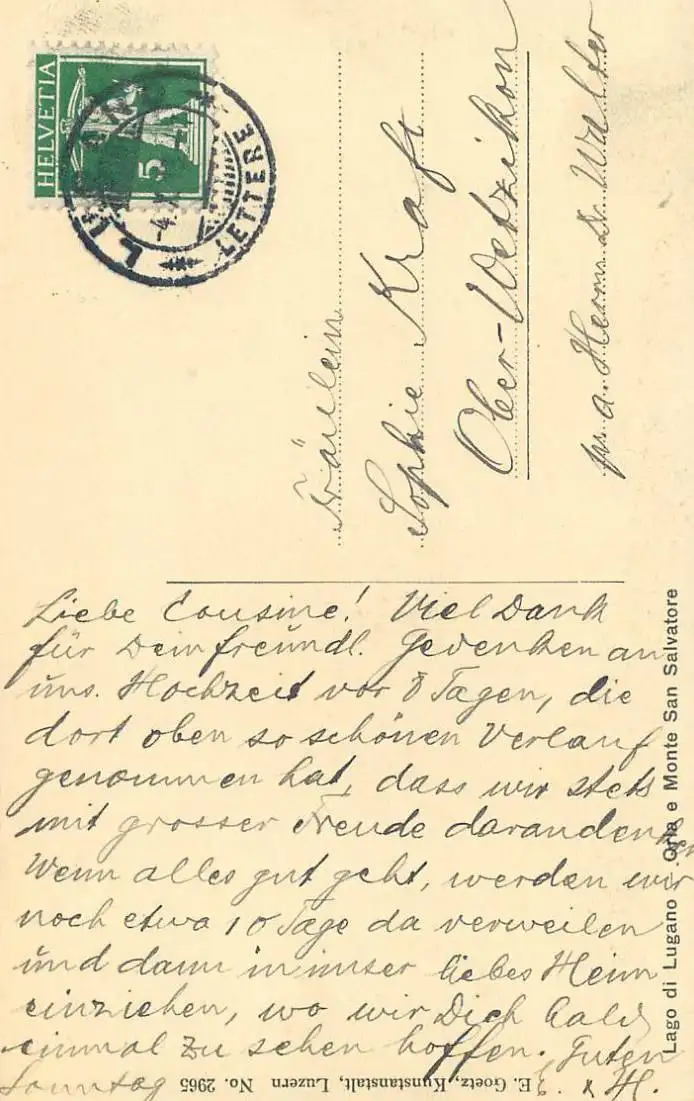 HELVETIA
5
LETTERE
Fräulein
Sophie Kraft
Ober-Wetzikon
pr. a. Herrn Dr. Walter
Liebe Cousine! Viel Dank
für Dein freundl. Gedenken an
uns. Hochzeit vor 8 Tagen, die
dort oben so schönen Verlauf
genommen hat, dass wir stets
mit grosser Freude daran denken
Wenn alles gut geht, werden wir
noch etwa 10 Tage da verweilen
und dann in unser liebes Heim
einziehen, wo wir Dich bald
einmal zu sehen hoffen. Guten
Sonntag E. & H.
Lago di Lugano - Oria e Monte San Salvatore
E. Goetz, Kunstanstalt, Luzern No. 2965